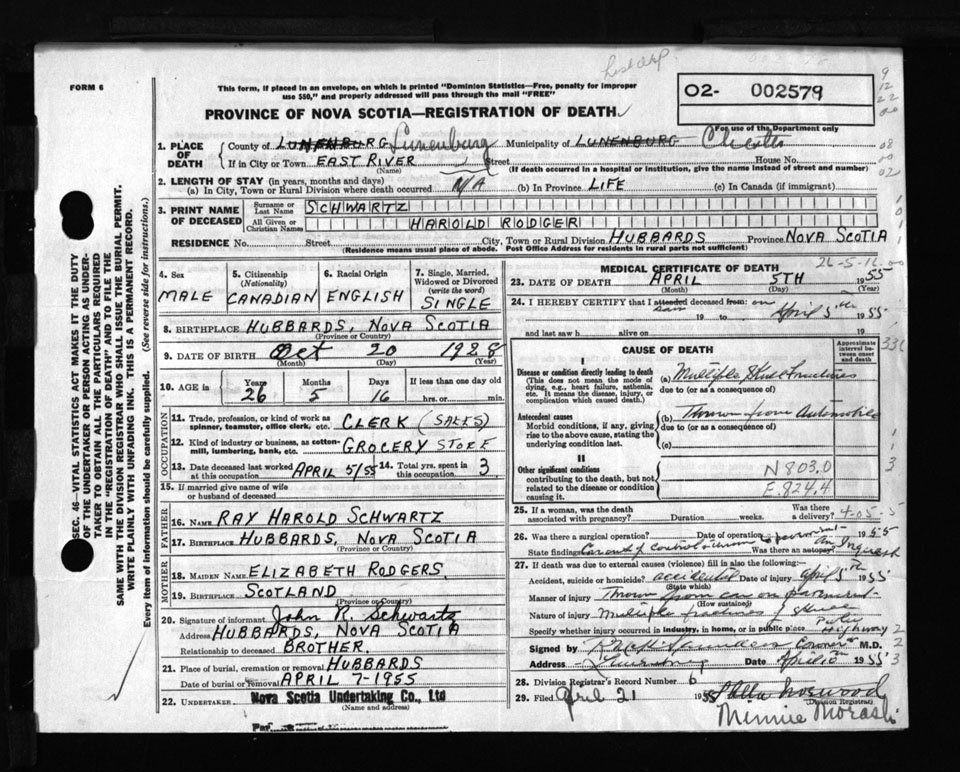 FORM 6
This form, if placed in an envelope, on which is printed "Dominion Statistics—Free, penalty for improper
use $50," and properly addressed will pass through the mail "FREE"
PROVINCE OF NOVA SCOTIA—REGISTRATION OF DEATH
02- 002579
For use of the Department only
1. PLACE OF DEATH
County of LUNENBURG Lunenburg Municipality of LUNENBURG Chester
If in City or Town EAST RIVER Street House No.
(Name) (If death occurred in a hospital or institution, give the name instead of street and number)
2. LENGTH OF STAY (in years, months and days)
(a) In City, Town or Rural Division where death occurred N/A (b) In Province LIFE (c) In Canada (if immigrant)
3. PRINT NAME OF DECEASED
Surname or Last Name SCHWARTZ
All Given or Christian Names HAROLD RODGER
RESIDENCE No. Street City, Town or Rural Division HUBBARDS Province NOVA SCOTIA
(Residence means usual place of abode. Post Office Address for residents in rural parts not sufficient)
4. Sex
MALE
5. Citizenship (Nationality)
CANADIAN
6. Racial Origin
ENGLISH
7. Single, Married, Widowed or Divorced (write the word)
SINGLE
8. BIRTHPLACE HUBBARDS, NOVA SCOTIA
(Province or Country)
9. DATE OF BIRTH Oct 20 1928
(Month) (Day) (Year)
10. AGE in Years Months Days If less than one day old
26 5 16 hrs. or min.
OCCUPATION
11. Trade, profession or kind of work as
spinner, teamster, office clerk, etc. CLERK (SALES)
12. Kind of industry or business, as cotton-
mill, lumbering, bank, etc. GROCERY STORE
13. Date deceased last worked at this occupation APRIL 5/55 14. Total yrs. spent in this occupation 3
15. If married give name of wife
or husband of deceased
FATHER
16. NAME RAY HAROLD SCHWARTZ
17. BIRTHPLACE HUBBARDS, NOVA SCOTIA
(Province or Country)
MOTHER
18. MAIDEN NAME ELIZABETH RODGERS
19. BIRTHPLACE SCOTLAND
(Province or Country)
20. Signature of informant John R. Schwartz
Address HUBBARDS, NOVA SCOTIA
Relationship to deceased BROTHER.
21. Place of burial, cremation or removal HUBBARDS
Date of burial or removal APRIL 7-1955
22. UNDERTAKER Nova Scotia Undertaking Co., Ltd
(Name and address)
Per
MEDICAL CERTIFICATE OF DEATH
23. DATE OF DEATH APRIL 5TH 1955
(Month) (Day) (Year)
24. I HEREBY CERTIFY that I attended deceased from: saw on
19 to April 5th 1955
and last saw h alive on 19
CAUSE OF DEATH
Approximate interval between onset and death
I
Disease or condition directly leading to death
(This does not mean the mode of dying, e.g., heart failure, asthenia, etc. It means the disease, injury, or complication which caused death.)
(a) Multiple Skull Fractures
due to (or as a consequence of)
Antecedent causes
Morbid conditions, if any, giving rise to the above cause, stating the underlying condition last.
(b) Thrown from Automobile
due to (or as a consequence of)
(c)
II
Other significant conditions
contributing to the death, but not related to the disease or condition causing it.
N 803.0
E. 824.4
25. If a woman, was the death associated with pregnancy? Duration weeks. Was there a delivery?
26. Was there a surgical operation? Date of operation 1955
State finding Was there an autopsy? An Inquest
27. If death was due to external causes (violence) fill in also the following:—
Accident, suicide or homicide? accidental Date of injury April 5th 1955
(State which)
Manner of injury Thrown from car on pavement
(How sustained)
Nature of injury Multiple fractures of skull
Specify whether injury occurred in industry, in home, or in public place Public Highway
Signed by Coroner M.D.
Address Lunenburg Date April 1955
28. Division Registrar's Record Number 6
29. Filed April 21 1955 Norwood
(Division Registrar)
Minnie Morash
SEC. 46—VITAL STATISTICS ACT MAKES IT THE DUTY
OF THE UNDERTAKER OR PERSON ACTING AS UNDER-
TAKER TO OBTAIN ALL THE PARTICULARS REQUIRED
IN THE "REGISTRATION OF DEATH" AND TO FILE THE
SAME WITH THE DIVISION REGISTRAR WHO SHALL ISSUE THE BURIAL PERMIT.
WRITE PLAINLY WITH UNFADING INK. THIS IS A PERMANENT RECORD.
Every item of information should be carefully supplied. (See reverse side for instructions.)